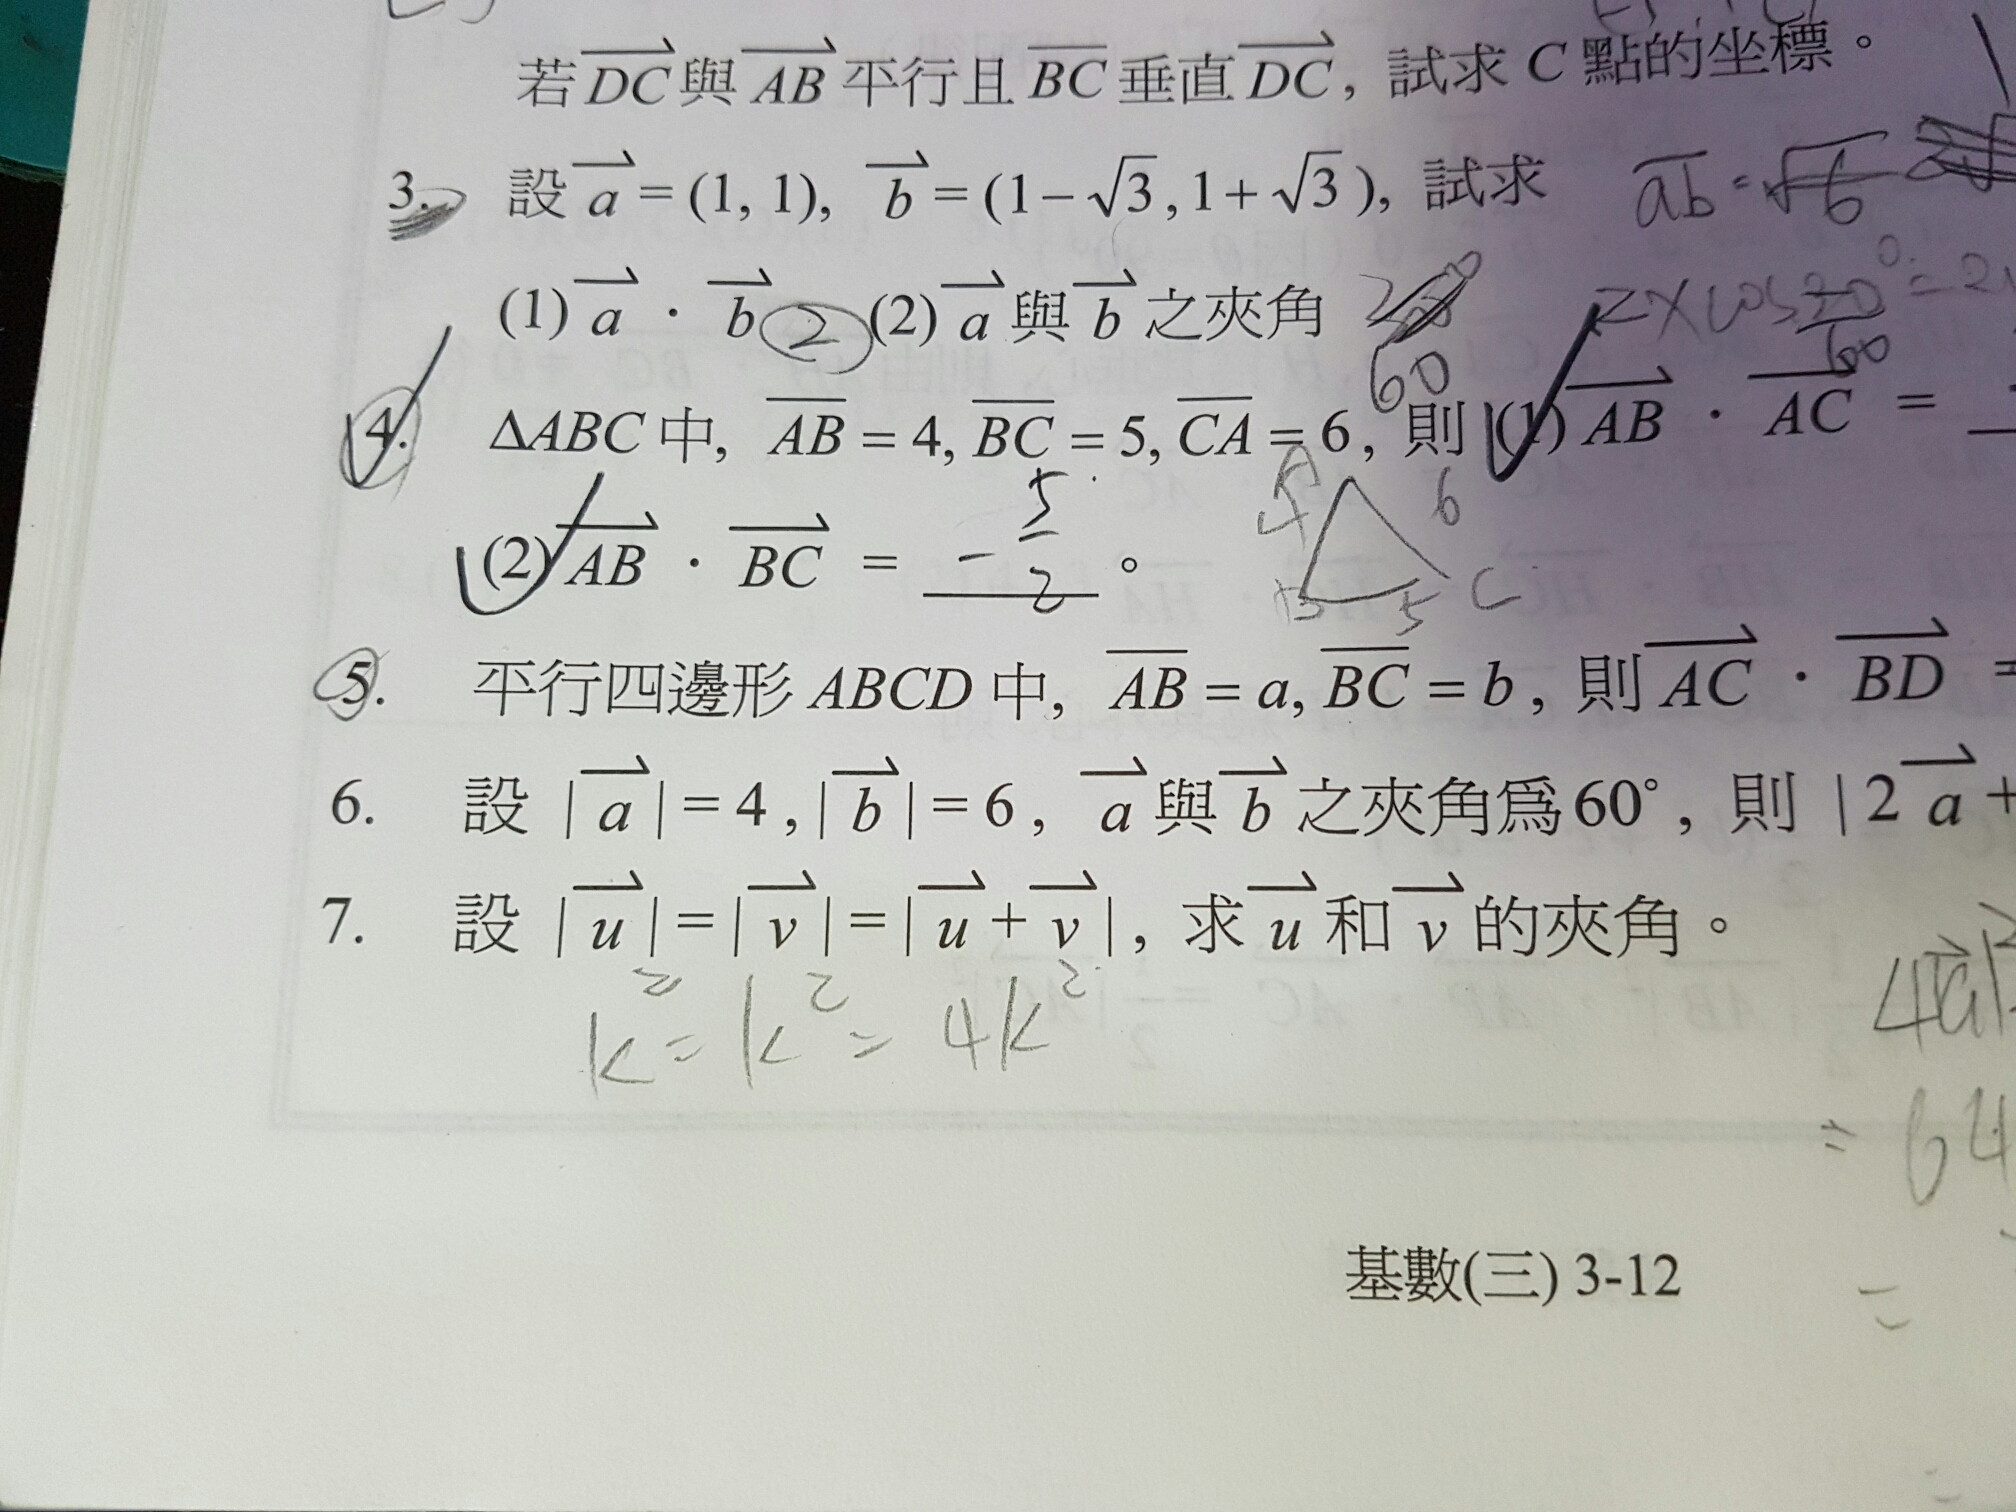 若 DC 與 AB 平行且 BC 垂直 DC, 試求 C 點的坐標。
3. 設 a = (1, 1), b = (1−√3, 1+√3), 試求 ab = √6
(1) a · b 2 (2) a 與 b 之夾角 60
4. ΔABC 中, AB = 4, BC = 5, CA = 6, 則 (1) AB · AC =
(2) AB · BC = −5/2 。
A 4 6 B 5 C
5. 平行四邊形 ABCD 中, AB = a, BC = b, 則 AC · BD =
6. 設 |a| = 4, |b| = 6, a 與 b 之夾角爲 60°, 則 |2a +
7. 設 |u| = |v| = |u + v|, 求 u 和 v 的夾角。
k² = k² = 4k²
4|a|²
= 64
基數(三) 3-12